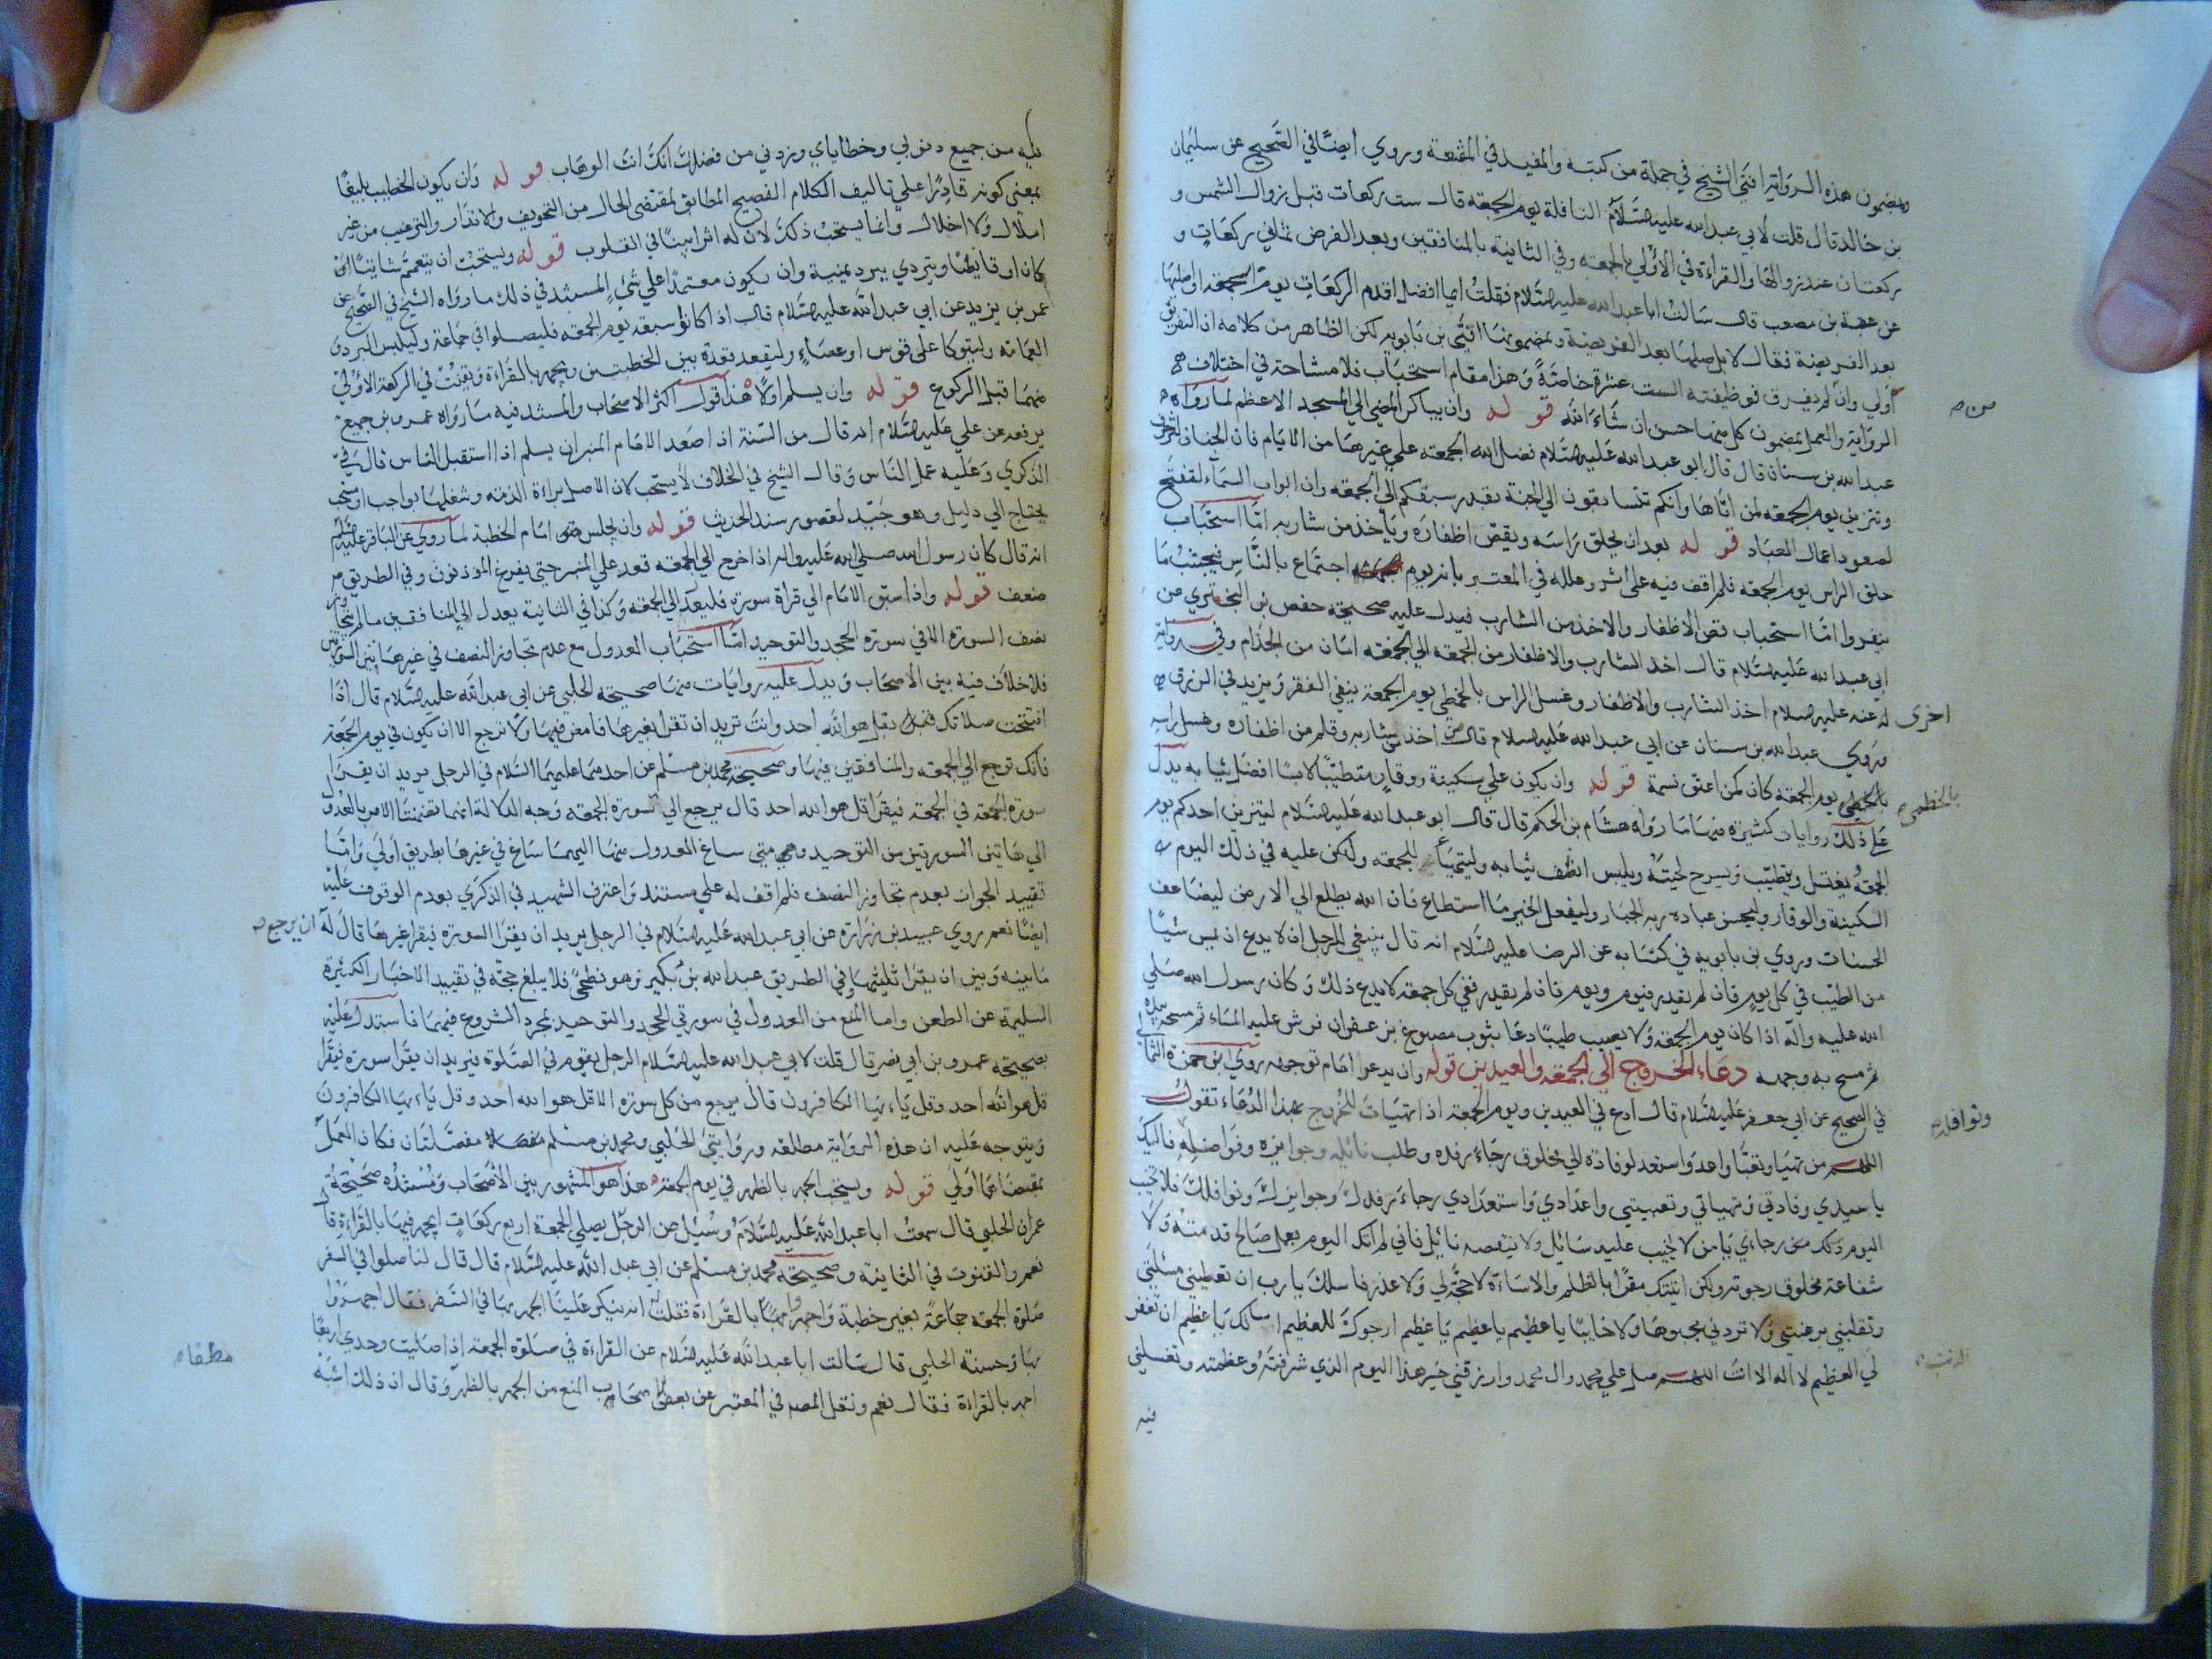 وبمضمون هذه الرواية افتى الشيخ في جملة من كتبه والمفيد في المقنعة وروي ايضا في الصحيح عن سليمان
بن خالد قال قلت لأبي عبد الله عليه السلام النافلة يوم الجمعة قال ست ركعات قبل زوال الشمس و
ركعتان عند زوالها والقراءة في الأولى بالجمعة وفي الثانية بالمنافقين وبعد الفرض ثماني ركعات و
عن عقبة بن مصعب قال سالت ابا عبد الله عليه السلام فقلت ايما افضل اقدم الركعات يوم الجمعة او اصليها
بعد الفريضة فقال لا بل صليها بعد الفريضة وبمضمونها افتى بن بابويه لكن الظاهر من كلامه ان التفريق
أولى وان لم يفرق فوظيفته الست عشرة خاصة وهذا مقام استحباب فلا مشاحة في اختلاف
من
الرواية والعمل بمضمون كل منها حسن ان شاء الله قوله وان يباكر المضي الى المسجد الاعظم لما رواه
عبد الله بن سنان قال قال ابو عبد الله عليه السلام فضل الله الجمعة على غيرها من الايام فان الجنان لتزخرف
وتزين يوم الجمعة لمن اتاها وانكم تتسابقون الى الجنة بقدر سبقكم الى الجمعة وان ابواب السماء لتفتح
لصعود اعمال العباد قوله بعد ان يحلق راسه ويقص اظفاره وياخذ من شاربه اما استحباب
حلق الراس يوم الجمعة فلم اقف فيه على اثر وعلله في المعتبر بانه يوم اجتماع بالناس فيجتنب ما
ينفر واما استحباب قص الاظفار والاخذ من الشارب فيدل عليه صحيحة حفص بن البختري عن
ابي عبد الله عليه السلام قال اخذ الشارب والاظفار من الجمعة الى الجمعة امان من الجذام وفي رواية
اخرى له عنه عليه السلام اخذ الشارب والاظفار وغسل الراس بالخطمي يوم الجمعة ينفي الفقر ويزيد في الرزق
وروي عبد الله بن سنان عن ابي عبد الله عليه السلام قال من اخذ من شاربه وقلم من اظفاره وغسل راسه
بالخطمي يوم الجمعة كان كمن اعتق نسمة قوله وان يكون على سكينة ووقار متطيبا لابسا افضل ثيابه يدل
بالخطمى
على ذلك روايات كثيرة منها ما رواه هشام بن الحكم قال قال ابو عبد الله عليه السلام ليتزين احدكم يوم
الجمعة يغتسل ويتطيب ويسرح لحيته ويلبس انظف ثيابه وليتهيأ للجمعة وليكن عليه في ذلك اليوم
السكينة والوقار وليحسن عبادة ربه الجبار وليفعل الخير ما استطاع فان الله يطلع الى الارض ليضاعف
الحسنات وروي بن بابويه في كتابه عن الرضا عليه السلام انه قال ينبغي للرجل ان لا يدع ان يمس شيئا
من الطيب في كل يوم فان لم يقدر فيوم ويوم فان لم يقدر ففي كل جمعة لا يدع ذلك وكان رسول الله صلى
الله عليه وآله اذا كان يوم الجمعة ولا يصيب طيبا دعا بثوب مصبوغ بزعفران فرش عليه الماء ثم مسحه بيده
ثم مسح به وجهه دعاء الخروج الى الجمعة والعيدين قوله وان يدعو امام توجهه روي ابو حمزة الثمالي
في الصحيح عن ابي جعفر عليه السلام قال ادع في العيدين ويوم الجمعة اذا تهيات للخروج بهذا الدعاء تقول
ونوافله
اللهم من تهيا وتعبا واعد واستعد لوفادة الى مخلوق رجاء رفده وطلب نائله وجوايزه وفواضله فاليك
يا سيدي وفادتي وتهياتي وتعبيتي واعدادي واستعدادي رجاء رفدك وجوايزك ونوافلك فلا تخيب
اليوم ذلك من رجائي يا من لا يخيب عليه سائل ولا ينقصه نائل فاني لم اتك اليوم بعمل صالح قدمته ولا
شفاعة مخلوق رجوته ولكن اتيتك مقرا بالظلم والاساءة لا حجة لي ولا عذر فاسلك يا رب ان تعطيني مسئلتي
وتقلبني برغبتي ولا تردني مجبوها ولا خايبا يا عظيم يا عظيم يا عظيم ارجوك للعظيم اسالك يا عظيم ان تغفر
لي العظيم لا اله الا انت اللهم صل على محمد وال محمد وارزقني خير هذا اليوم الذي شرفته وعظمته وتغسلني
فيه
فيه من جميع ذنوبي وخطاياي وزدني من فضلك انك انت الوهاب قوله وان يكون الخطيب بليغا
بمعنى كونه قادرا على تاليف الكلام الفصيح المطابق لمقتضى الحال من التخويف والانذار والترغيب من غير
املال ولا اخلال وانما يستحب ذلك لان له اثرا بينا في القلوب قوله ويستحب ان يتعمم شاتيا
كان او قايظا ويتردي ببرد يمنية وان يكون معتمدا على شيء المستند في ذلك ما رواه الشيخ في الصحيح عن
عمر بن يزيد عن ابي عبد الله عليه السلام قال اذا كانوا سبعة يوم الجمعة فليصلوا في جماعة وليلبس البرد و
العمامة وليتوكا على قوس او عصا وليقعد قعدة بين الخطبتين ويجهر بالقراءة ويقنت في الركعة الاولى
منهما قبل الركوع قوله وان يسلم اولا هذا قول اكثر الاصحاب والمستند فيه ما رواه عمرو بن جميع
يرفعه عن علي عليه السلام انه قال من السنة اذا صعد الامام المنبر ان يسلم اذا استقبل الناس قال في
الذكرى وعليه عمل الناس وقال الشيخ في الخلاف لا يستحب لان الاصل براءة الذمة وشغلها بواجب او ستحب
يحتاج الى دليل وهو جيد لقصور سند الحديث قوله وان يجلس امام الخطبة لما روي عن الباقر عليه السلام
انه قال كان رسول الله صلى الله عليه واله اذا خرج الى الجمعة قعد على المنبر حتى يفرغ المؤذنون وفي الطريق
ضعف قوله واذا سبق الامام الى قراة سورة فليعدل الى الجمعة وكذا في الثانية يعدل الى المنافقين ما لم يتجاوز
نصف السورة الا في سورة الجحد والتوحيد اما استحباب العدول مع عدم تجاوز النصف في غير هاتين السورتين
فلا خلاف فيه بين الاصحاب ويدل عليه روايات منها صحيحة الحلبي عن ابي عبد الله عليه السلام قال اذا
افتتحت صلاتك بقل هو الله احد وانت تريد ان تقرا بغيرها فامض فيها ولا ترجع الا ان يكون في يوم الجمعة
فانك ترجع الى الجمعة والمنافقين فيها وصحيحة محمد بن مسلم عن احدهما عليهما السلام في الرجل يريد ان يقرا
سورة الجمعة في الجمعة فيقرا قل هو الله احد قال يرجع الى سورة الجمعة وجه الدلالة انهما تضمنتا الامر بالعدول
الى هاتين السورتين من التوحيد ومتى ساغ العدول منها اليهما ساغ في غيرها بطريق اولى واما
تقييد الجواز بعدم تجاوز النصف فلم اقف له على مستند واعترف الشهيد في الذكرى بعدم الوقوف عليه
ايضا نعم روي عبيد بن زرارة عن ابي عبد الله عليه السلام في الرجل يريد ان يقرا السورة فيقرا غيرها قال له ان يرجع
ما بينه وبين ان يقرا ثلثيها وفي الطريق عبد الله بن بكير وهو فطحي فلا يبلغ حجة في تقييد الاخبار الكثيرة
السليمة عن الطعن واما المنع من العدول في سورتي الجحد والتوحيد بمجرد الشروع فيهما فاستدل عليه
بصحيحة عمرو بن ابي نصر قال قلت لابي عبد الله عليه السلام الرجل يقوم في الصلوة فيريد ان يقرا سورة فيقرا
قل هو الله احد وقل يا ايها الكافرون قال يرجع من كل سورة الا قل هو الله احد وقل يا ايها الكافرون
ويتوجه عليه ان هذه الرواية مطلقة وروايتي الحلبي ومحمد بن مسلم مفصلتان فكان العمل
بمقتضاهما اولى قوله ويستحب الجهر بالظهر في يوم الجمعة هذا هو المشهور بين الاصحاب ومستنده صحيحة
عمران الحلبي قال سمعت ابا عبد الله عليه السلام وسئل عن الرجل يصلي الجمعة اربع ركعات ايجهر فيها بالقراءة قال
نعم والقنوت في الثانية وصحيحة محمد بن مسلم عن ابي عبد الله عليه السلام قال قال لنا صلوا في السفر
صلوة الجمعة جماعة بغير خطبة واجهروا بالقراءة فقلت انه ينكر علينا الجهر بها في السفر فقال اجهروا
بها وحسنة الحلبي قال سالت ابا عبد الله عليه السلام عن القراءة في صلوة الجمعة اذا صليت وحدي اربعا
اجهر بالقراءة فقال نعم ونقل المصنف في المعتبر عن بعض الاصحاب المنع من الجهر بالظهر وقال ان ذلك اشبه